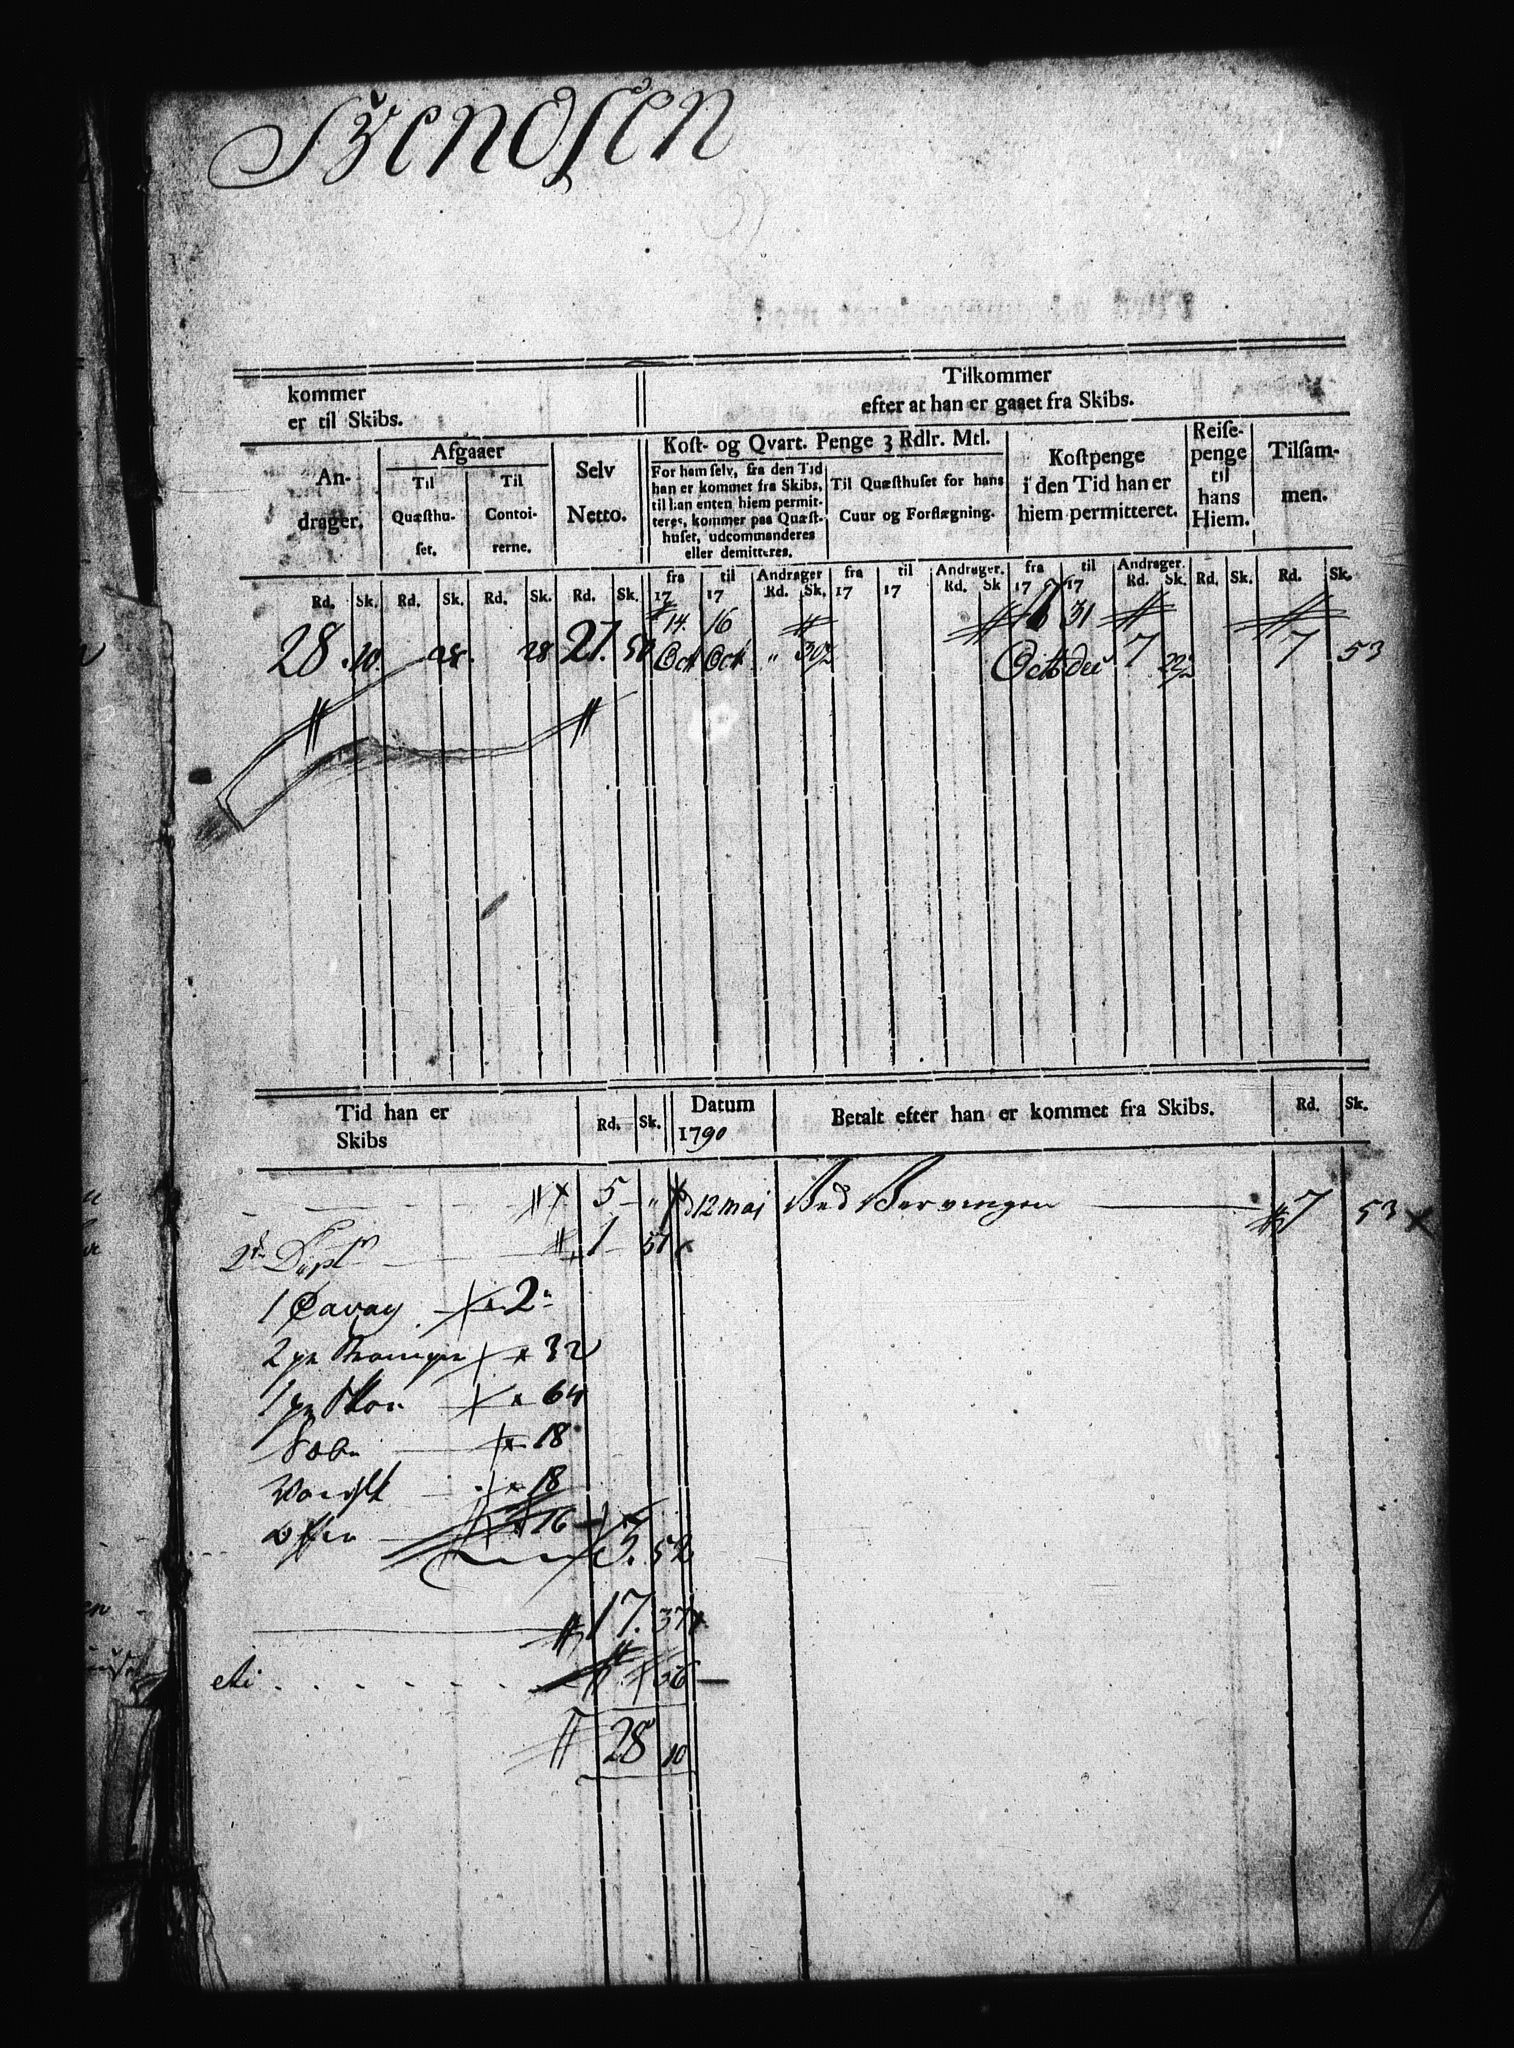 Svendsen
kommer
er til Skibs.
Tilkommer
efter at han er gaaet fra Skibs.
An-
drager.
Afgaaer
Til
Quæsthu-
set.
Til
Contoi-
rerne.
Selv
Netto.
Kost- og Qvart. Penge 3 Rdlr. Mtl.
For ham selv, fra den Tid
han er kommet fra Skibs,
til han enten hiem permit-
teres, kommer paa Quæst-
huset, udcommanderes
eller demitteres.
Til Quæsthuset for hans
Cuur og Forflægning.
Kostpenge
i den Tid han er
hiem permitteret.
Reise-
penge
til
hans
Hiem.
Tilsam-
men.
fra til Andrager fra til Andrager. fra til Andrager.
Rd. Sk. Rd. Sk. Rd. Sk. Rd. Sk. 17 17 Rd. Sk. 17 17 Rd. Sk 17 17 Rd. Sk. Rd. Sk. Rd. Sk.
14. 16 31
28. 10. 28. 28 27. 50 Oct Oct " 30½ Oct dec 7 22½ 7 53
Tid han er
Skibs
Rd. Sk.
Datum
1790
Betalt efter han er kommet fra Skibs.
Rd. Sk.
5 " d 12 maj Ved 7 53
1 57
1 2
2 pr 32
1 pr Skoe 64
Sæbe 18
18
16
5. 52
17. 37
56
28 10